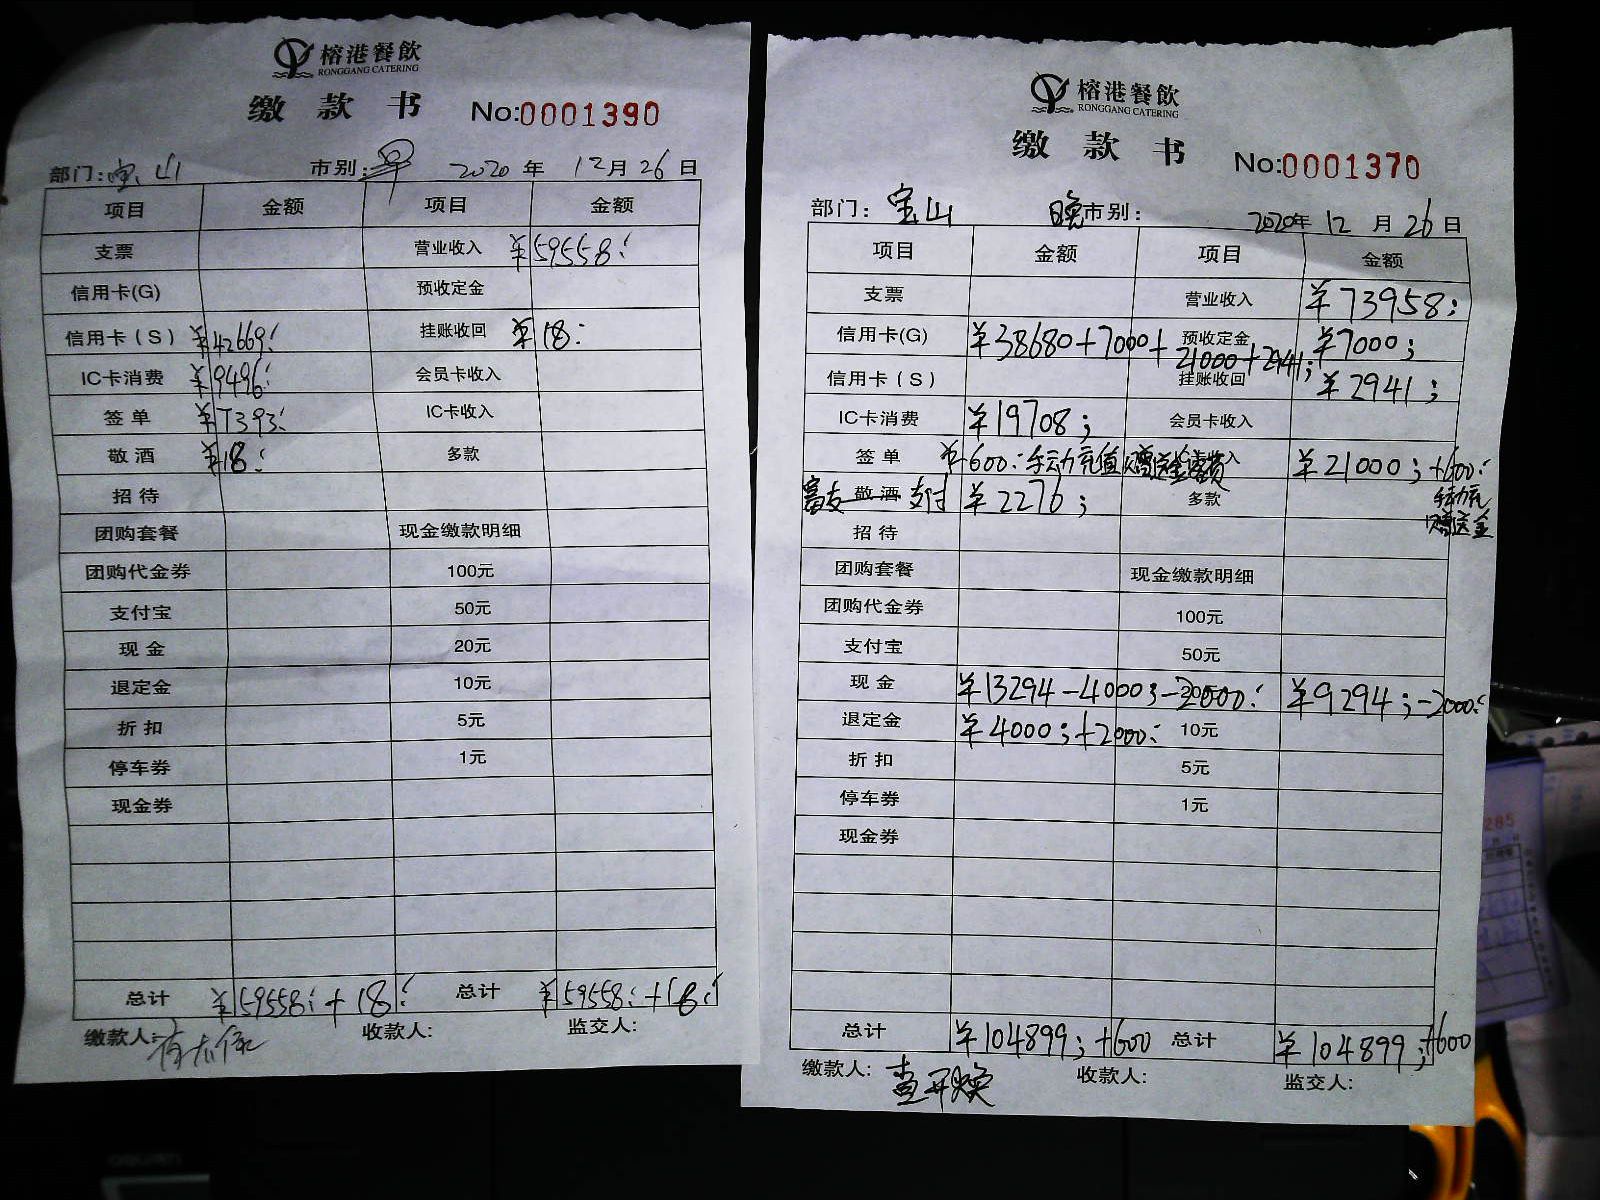 榕港餐飲
RONGGANG CATERING
缴 款 书 No:0001390
部门:宝山 市别:早 2020年 12月26日
项目 金额 项目 金额
支票 营业收入 ¥59558:
信用卡(G) 预收定金
信用卡(S) ¥42669: 挂账收回 ¥18:
IC卡消费 ¥9496: 会员卡收入
签 单 ¥7393: IC卡收入
敬 酒 ¥18: 多款
招 待
团购套餐 现金缴款明细
团购代金券 100元
支付宝 50元
现 金 20元
退定金 10元
折 扣 5元
停车券 1元
现金券
总计 ¥59558:+18: 总计 ¥59558:+18:
缴款人: 收款人: 监交人:
榕港餐飲
RONGGANG CATERING
缴 款 书 No:0001370
部门: 宝山 晚市别: 2020年 12 月 26 日
项目 金额 项目 金额
支票 营业收入 ¥73958;
信用卡(G) ¥38680+7000+21000+2941; 预收定金 ¥7000;
信用卡(S) 挂账收回 ¥2941;
IC卡消费 ¥19708; 会员卡收入
签 单 ¥600:手动充值赠送金 收入 ¥21000;+600:手动充赠送金
富友 敬酒 支付 ¥2276; 多款
招 待
团购套餐 现金缴款明细
团购代金券 100元
支付宝 50元
现 金 ¥13294-4000;-2000: ¥9294;-2000:
退定金 ¥4000;+2000: 10元
折 扣 5元
停车券 1元
现金券
总计 ¥104899;+600 总计 ¥104899;+600
缴款人: 查开焕 收款人: 监交人:
285